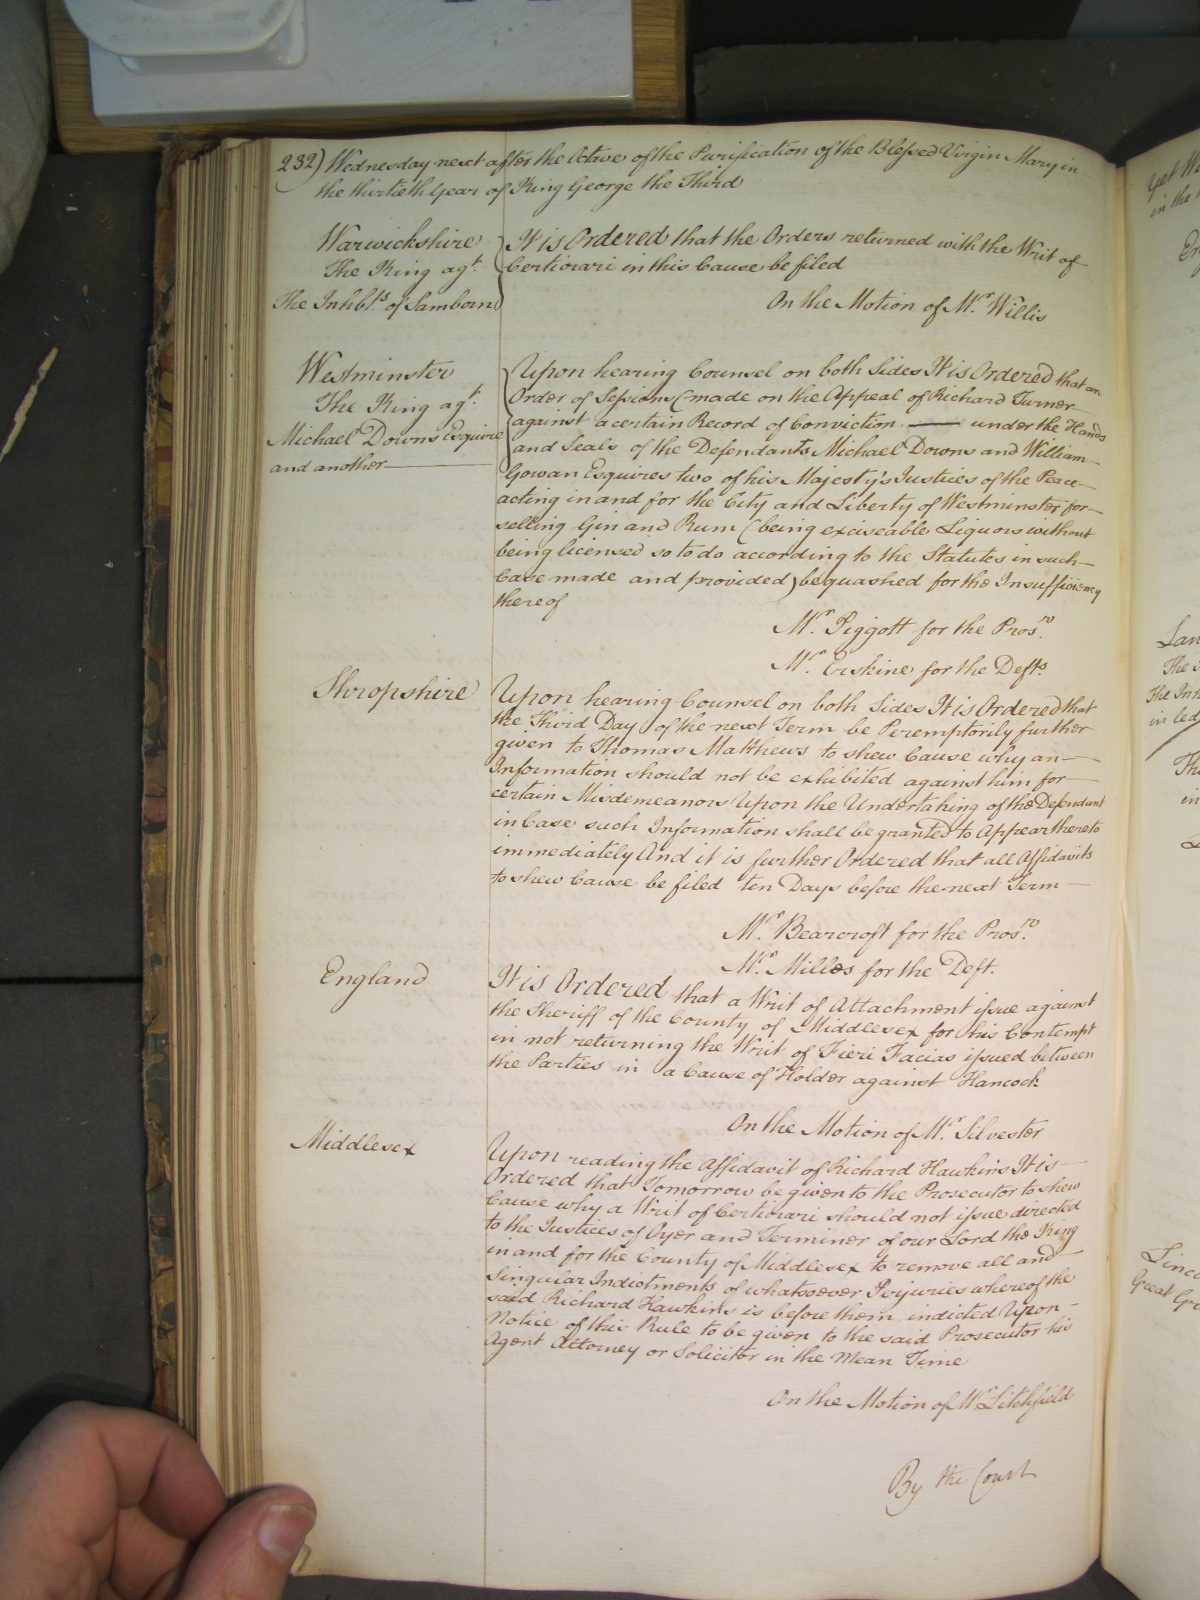 232) Wednesday next after the Octave of the Purification of the Blessed Virgin Mary in
the thirtieth Year of King George the Third
Warwickshire
The King agt.
The Inhbts. of Samborn
It is Ordered that the Orders returned with the Writ of
Certiorari in this Cause be filed
On the Motion of Mr. Willis
Westminster
The King agt.
Michael Downs Esquire
and another
Upon hearing Counsel on both Sides It is Ordered that an
Order of Sessions (made on the Appeal of Richard Turner
against a certain Record of Conviction — under the Hands
and Seals of the Defendants Michael Downs and William
Gowan Esquires two of his Majesty's Justices of the Peace
acting in and for the City and Liberty of Westminster for
selling Gin and Rum (being exciseable Liquors without
being licensed so to do according to the Statutes in such
Case made and provided) be quashed for the Insufficiency
thereof
Mr. Piggott for the Prosr.
Mr. Erskine for the Defts.
Shropshire
Upon hearing Counsel on both Sides It is Ordered that
the Third Day of the next Term be Peremptorily further
given to Thomas Matthews to shew Cause why an
Information should not be exhibited against him for
certain Misdemeanors Upon the Undertaking of the Defendant
in Case such Information shall be granted to Appear thereto
immediately And it is further Ordered that all Affidavits
to shew Cause be filed ten Days before the next Term
Mr. Bearcroft for the Prosr.
Mr. Milles for the Deft.
England
It is Ordered that a Writ of Attachment issue against
the Sheriff of the County of Middlesex for his Contempt
in not returning the Writ of Fieri Facias issued between
the Parties in a Cause of Holder against Hancock
On the Motion of Mr. Silvester
Middlesex
Upon reading the Affidavit of Richard Hawkins It is
Ordered that Tomorrow be given to the Prosecutor to shew
Cause why a Writ of Certiorari should not issue directed
to the Justices of Oyer and Terminer of our Lord the King
in and for the County of Middlesex to remove all and
Singular Indictments of whatsoever Perjuries whereof the
said Richard Hawkins is before them indicted Upon
Notice of this Rule to be given to the said Prosecutor his
Agent Attorney or Solicitor in the Mean Time
On the Motion of Mr. Litchfield
By the Court